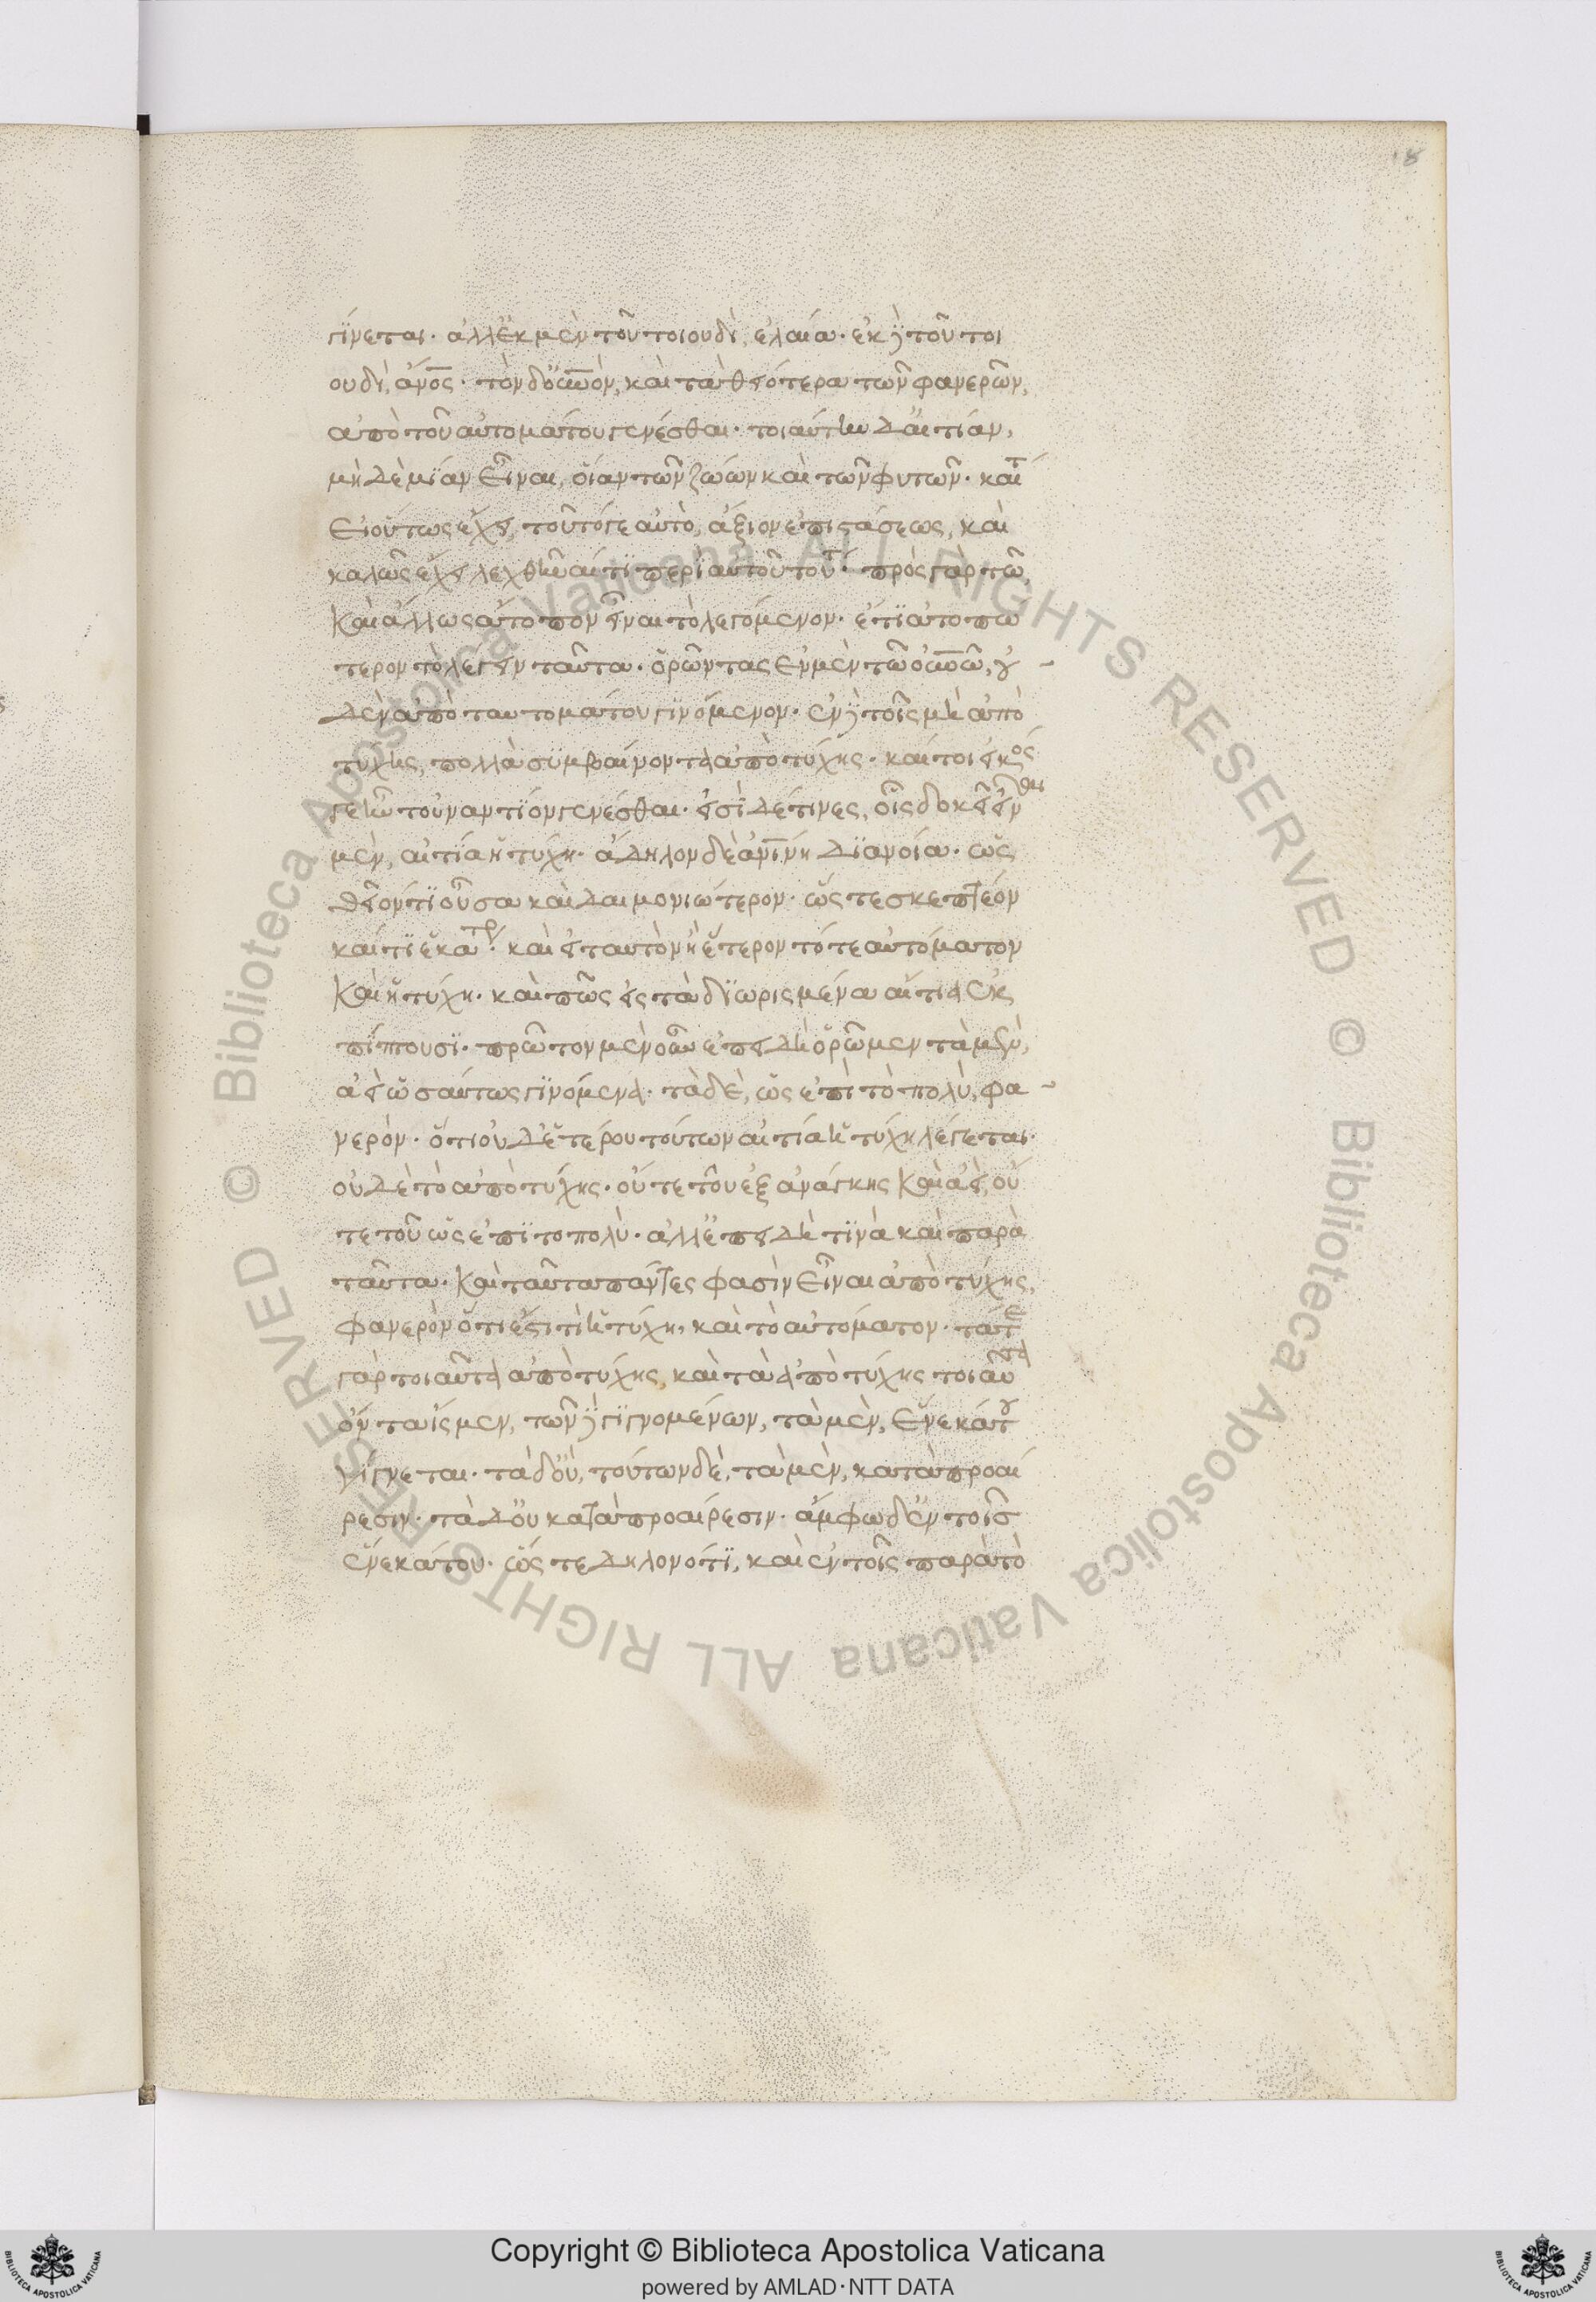 18
γίνεται· ἀλλ' ἐκ μὲν τοῦ τοιουδὶ, ἐλαία· ἐκ δὲ τοῦ τοι
ουδὶ, ἄνος· τὸν δ' οὐνὸν, καὶ τὰ θειότερα τῶν φανερῶν,
ἀπὸ τοῦ αὐτομάτου γενέσθαι· τοιαύτην δ' αἰτίαν,
μὴδὲμΐαν εἶναι, οἵαν τῶν ζώων καὶ τῶν φυτῶν· καίτ
εἰ οὕτως ἔχει, τοῦτό γε αὐτὸ, ἄξιον ἐπιστάσεως, καὶ
καλῶς ἔχει λεχθῆναί τϊ περὶ αὐτοῦ τούτ· πρὸς γὰρ τῶ
καὶ ἄλλως ἄτοπον εἶναι τὸ λεγόμενον· ἔτϊ ἀτοπώ
τερον τὸ λέγειν ταῦτα· ὁρῶντας ἐν μὲν τῶ οὐνῶ, οὐ
δὲν ἀπὸ ταυτομάτου γϊνόμενον· ἐν δὲ τοῖς μὴ ἀπὸ
τύχης, πολλὰ συμβαίνοντα ἀπὸ τύχης· καίτοι εἰκός
γε ἦν τοὐναντίον γενέσθαι· εἰσὶ δέ τινες, οἷς δοκεῖ εἶναι
μὲν, αἰτία ἡ τύχη· ἄδηλον δὲ ἀνίνη διανοία· ὡς
θεῖόν τϊ οὖσα καὶ δαιμονιώτερον· ὥς τε σκεπτέον
καὶ τϊ ἑκάτρ· καὶ εἰ ταυτὸν ἢ ἕτερον τό τε αὐτόματον
καὶ ἡ τύχη· καὶ πῶς εἰς τὰ διωρισμένα αἴτια ἐκ
πίπτουσϊ· πρῶτον μὲν οὖν ἐπειδὴ ὁρῶμεν τὰ μὲν,
ἀεὶ ὡσαύτως γϊνόμενα· τὰ δὲ, ὡς ἐπὶ τὸ πολὺ, φα
νερὸν· ὅτι οὐδετέρου τούτων αἰτία ἡ τύχη λέγεται·
οὐδὲ τὸ ἀπὸ τύχης· οὔτε τοῦ ἐξ ἀνάγκης καὶ ἀεὶ, οὔ
τε τοῦ ὡς ἐπϊ το πολὺ· ἀλλ' ἐπειδή τϊνὰ καὶ παρὰ
ταῦτα· καὶ ταῦτα πάντες φασὶν εἶναι ἀπὸ τύχης,
φανερὸν ὅτι ἔστι τὶ ἡ τύχη, καὶ τὸ αὐτόματον· τάτε
γὰρ τοιαῦτα ἀπὸ τύχης, καὶ τὰ ἀπὸ τύχης τοιαῦτα
ὄντα ἴσμεν, τῶν δὲ γϊγνομένων, τὰ μὲν, ἕνεκά του
γίγνεται· τὰ δ' οὐ, τούτων δὲ, τὰ μὲν, κατὰ προαί
ρεσιν· τὰ δ' οὐ κατὰ προαίρεσιν· ἄμφω δ' ἐν τοῖς
ἕνεκά του· ὥς τε δηλονότϊ, καὶ ἐν τοῖς παρὰ τὸ
Copyright © Biblioteca Apostolica Vaticana
powered by AMLAD·NTT DATA
© Biblioteca Apostolica Vaticana ALL RIGHTS RESERVED
© Biblioteca Apostolica Vaticana ALL RIGHTS RESERVED
BIBLIOTECA APOSTOLICA VATICANA
BIBLIOTECA APOSTOLICA VATICANA